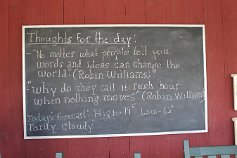 Thoughts for the day:
"No matter what people tell you
words and ideas can change the
world." (Robin Williams)
"Why do they call it rush hour
when nothing moves" (Robin Williams)
Today's forecast: High- Low-
Partly Cloudy